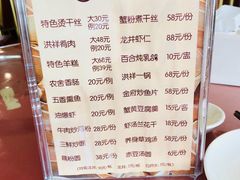 特色烫干丝 大30元 例20元
洪祥肴肉 大48元 例20元
特色羊糕 大68元 例39元
农舍香肠 20元/例
五香熏鱼 20元/例
油爆虾 20元/例
牛肉炒
三鲜炒面
藕粉圆 38元/例
蟹粉煮干丝 58元/份
龙井虾仁 88元/份
百合炖乳鸽 10元/盅
洪祥一锅 68元/份
金府炒鱼片 58元/份
蟹黄豆腐羹 15元/盅
虾汤兰花干 18元/份
养身草鸡汤 58元/份
赤豆汤圆 6元/份